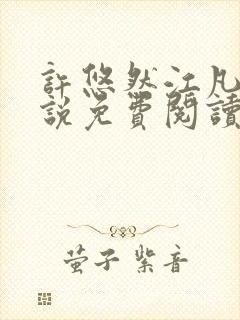 許悠然江凡
說免費閱讀
萤子 紫音